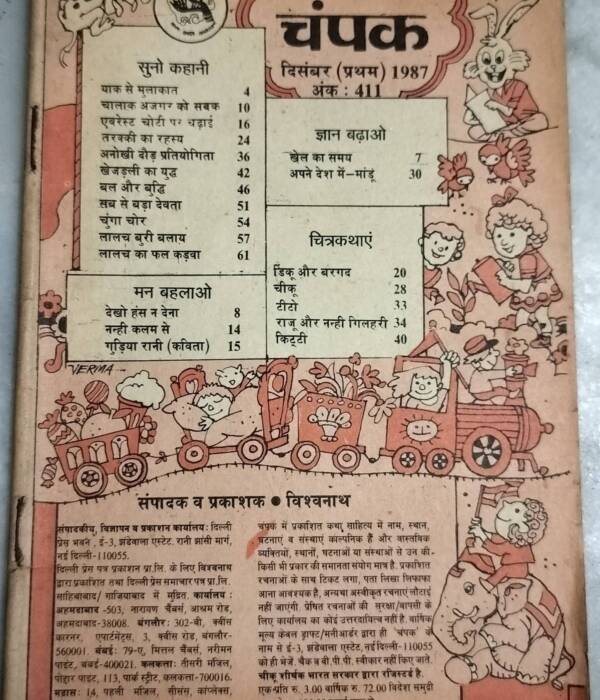 चंपक
दिसंबर (प्रथम) 1987
अंक : 411
सुनो कहानी
याक से मुलाकात 4
चालाक अजगर को सबक 10
एवरेस्ट चोटी पर चढ़ाई 16
तरक्की का रहस्य 24
अनोखी दौड़ प्रतियोगिता 36
खेजड़ली का युद्ध 42
बल और बुद्धि 46
सब से बड़ा देवता 51
चुंगा चोर 54
लालच बुरी बलाय 57
लालच का फल कड़वा 61
ज्ञान बढ़ाओ
खेल का समय 7
अपने देश में—मांडू 30
चित्रकथाएं
डिंकू और बरगद 20
चीकू 28
टीटो 33
राजू और नन्ही गिलहरी 34
किट्टी 40
मन बहलाओ
देखो हंस न देना 8
नन्ही कलम से 14
गुड़िया रानी (कविता) 15
VERMA
संपादक व प्रकाशक ● विश्वनाथ
संपादकीय, विज्ञापन व प्रकाशन कार्यालय: दिल्ली
प्रेस भवन, ई-3, झंडेवाला एस्टेट, रानी झांसी मार्ग,
नई दिल्ली-110055.
दिल्ली प्रेस पत्र प्रकाशन प्रा.लि. के लिए विश्वनाथ
द्वारा प्रकाशित तथा दिल्ली प्रेस समाचार पत्र प्रा.लि.
साहिबाबाद/ गाजियाबाद में मुद्रित. कार्यालय :
अहमदाबाद -503, नारायण चैंबर्स, आश्रम रोड,
अहमदाबाद-38008. बंगलौर: 302-बी, क्वींस
कारनर, एपार्टमेंट्स, 3, क्वींस रोड, बंगलौर-
560001. बंबई: 79-ए, मित्तल चैंबर्स, नरीमन
पाइंट, बंबई-400021. कलकत्ता: तीसरी मंजिल,
पोद्दार पाइंट, 113, पार्क स्ट्रीट, कलकत्ता-700016.
मद्रास: 14, पहली मंजिल, सीसंस, कांप्लेक्स,
चंपक में प्रकाशित कथा साहित्य में नाम, स्थान,
घटनाएं व संस्थाएं काल्पनिक हैं और वास्तविक
व्यक्तियों, स्थानों, घटनाओं या संस्थाओं से उन की
किसी भी प्रकार की समानता संयोग मात्र है. प्रकाशित
रचनाओं के साथ टिकट लगा, पता लिखा लिफाफा
आना आवश्यक है, अन्यथा अस्वीकृत रचनाएं लौटाई
नहीं जाएंगी. प्रेषित रचनाओं की सुरक्षा/वापसी के
लिए कार्यालय का कोई उत्तरदायित्व नहीं है. वार्षिक
मूल्य केवल ड्राफ्ट/मनीआर्डर द्वारा ही 'चंपक' के
नाम से ई-3, झंडेवाला एस्टेट, नई दिल्ली-110055
को ही भेजें. चैक व वी.पी.पी. स्वीकार नहीं किए जाते.
चीकू शीर्षक भारत सरकार द्वारा रजिस्टर्ड है.
एक प्रति रु. 3.00 वार्षिक रु. 72.00 विदेश समुद्री